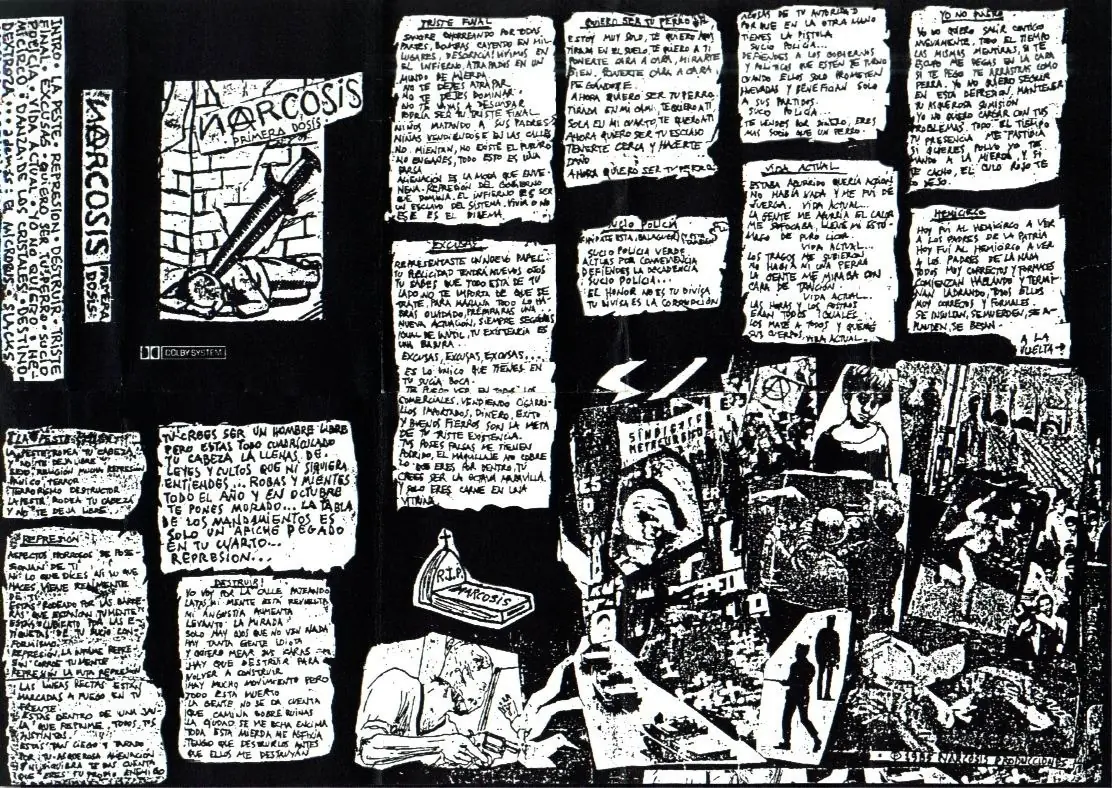 INTRO • LA PESTE • REPRESION • DESTRUIR • TRISTE
FINAL • EXCUSAS • QUIERO SER TU PERRO • SUCIO
POLICIA • VIDA ACTUAL • YO NO QUIERO • HE-
MICIRCO • DANZA DE LOS CRISTALES • DESTINO
NARCOSIS PRIMERA DOSIS
NARCOSIS
PRIMERA DOSIS
COLBY SYSTEM
LA PESTE
LA PESTE RODEA TU CABEZA
Y NO TE DEJA LIBRE
PANICO TERROR
TERRORISMO DESTRUCTOR
LA PESTE RODEA TU CABEZA
Y NO TE DEJA LIBRE
REPRESIÓN
NI LO QUE DICES NI LO QUE
HACES VIENE REALMENTE
DE TI
ESTAS RODEADO POR LAS BARRE-
RAS QUE ESTANCAN TU MENTE
ESTAS CUBIERTO POR LAS E-
TIQUETAS DE TU SUCIO CON-
FORMISMO
REPRESIÓN, LA INFAME REPRE-
SIÓN CORROE TU MENTE
REPRESIÓN LA PUTA REPRESIÓN
LAS LINEAS RECTAS ESTÁN
MARCADAS A FUEGO EN TU
FRENTE
ESTAS DENTRO DE UNA JAU-
LA QUE REPRIME TODOS TUS
INSTINTOS
ESTAS TAN CIEGO Y TARADO
POR TU ASQUEROSA ALIENACIÓN
NI SIQUIERA TE DAS CUENTA
QUE ERES TU PROPIO ENEMIGO
TU CREES SER UN HOMBRE LIBRE
PERO ESTAS TODO CUADRICULADO
TU CABEZA LA LLENAS DE
LEYES Y CULTOS QUE NI SIQUIERA
ENTIENDES... ROBAS Y MIENTES
TODO EL AÑO Y EN OCTUBRE
TE PONES MORADO... LA TABLA
DE LOS MANDAMIENTOS ES
SOLO UN AFICHE PEGADO
EN TU CUARTO...
REPRESION...
DESTRUIR!
YO VOY POR LA CALLE PATEANDO
LATAS, MI MENTE ESTA REVUELTA
MI ANGUSTIA AUMENTA
LEVANTO LA MIRADA
SOLO HAY OJOS QUE NO VEN NADA
HAY TANTA GENTE IDIOTA
Y QUIERO MEAR SUS CARAS
HAY QUE DESTRUIR PARA
VOLVER A CONSTRUIR
HAY MUCHO MOVIMIENTO PERO
TODO ESTA MUERTO
LA GENTE NO SE DA CUENTA
QUE CAMINA SOBRE RUINAS
LA CIUDAD SE ME ECHA ENCIMA
TODA ESTA MIERDA ME ASFIXIA
TENGO QUE DESTRUIRLOS ANTES
QUE ELLOS ME DESTRUYAN
TRISTE FINAL
SANGRE CHORREANDO POR TODAS
PARTES, BOMBAS CAYENDO EN MIL
LUGARES, DESGRACIA! VIVIMOS EN
EL INFIERNO, ATRAPADOS EN UN
MUNDO DE MIERDA
NO TE DEJES ATRAPAR
NO TE DEJES DOMINAR
NO TE VAYAS A DESCUIDAR
PODRIA SER TU TRISTE FINAL...
NIÑOS MATANDO A SUS PADRES
NIÑAS VENDIENDOSE EN LAS CALLES
NO MIENTAN, NO EXISTE EL FUTURO
NO ENGAÑES, TODO ESTO ES UNA
FARSA
ALIENACIÓN ES LA MODA QUE ENVE-
NENA, REPRESIÓN DEL GOBIERNO
QUE DOMINA, EL INFIERNO ES SER
UN ESCLAVO DEL SISTEMA, VIVIR O NO
ESE ES EL DILEMA
EXCUSAS
REPRESENTASTE UN NUEVO PAPEL
TU PUBLICIDAD TENDRÁ NUEVOS OJOS
TU SABES QUE TODO ESTA DE TU
LADO NO TE IMPORTA DE QUE SE
TRATE, PARA MAÑANA TODO LO HA-
BRAS OLVIDADO, PREPARARAS UNA
NUEVA ACTUACION, SIEMPRE SEGUIRAS
IGUAL DE INUTIL, TU EXISTENCIA ES
UNA BASURA...
EXCUSAS, EXCUSAS, EXCUSAS...
ES LO UNICO QUE TIENES EN
TU SUCIA BOCA.
TE PUEDO VER EN TODOS LOS
COMERCIALES, VENDIENDO CIGARRI-
LLOS IMPORTADOS, DINERO, EXITO
Y BUENOS FIERROS SON LA META
DE TU TRISTE EXISTENCIA.
TUS POSES FALSAS ME TIENEN
PODRIDO, EL MAQUILLAJE NO CUBRE
LO QUE ERES POR DENTRO, TU
CREES SER LA OCTAVA MARAVILLA
Y SOLO ERES CARNE EN UNA
VITRINA
R.I.P.
NARCOSIS
QUIERO SER TU PERRO
ESTOY MUY SOLO, TE QUIERO AQUI
TIRADA EN EL SUELO, TE QUIERO A TI
PONERTE CARA A CARA, MIRARTE
BIEN. PONERTE CARA A CARA,
PEGANDOTE.
AHORA QUIERO SER TU PERRO
TIRADA EN MI CAMA, TE QUIERO A TI
SOLA EN MI CUARTO, TE QUIERO A TI
AHORA QUIERO SER TU ESCLAVO
TENERTE CERCA Y HACERTE
DAÑO
AHORA QUIERO SER TU PERRO
SUCIO POLICÍA
SUCIO POLICIA VERDE
ACTUAS POR CONVENIENCIA
DEFIENDES LA DECADENCIA
SUCIO POLICIA...
EL HONOR NO ES TU DIVISA
TU DIVISA ES LA CORRUPCIÓN
ABUSAS DE TU AUTORIDAD
PORQUE EN LA OTRA MANO
TIENES LA PISTOLA
SUCIO POLICIA...
DEFIENDES A LOS GOBIERNOS
Y POLITICOS QUE ESTEN DE TURNO
CUANDO ELLOS SOLO PROMETEN
HUEVADAS Y BENEFICIAN SOLO
A SUS PARTIDOS.
SUCIO POLICIA...
TE VENDES POR DINERO, ERES
MAS SUCIO QUE UN PERRO.
VIDA ACTUAL
ESTABA ABURRIDO QUERÍA ACCION
NO HABÍA NADA Y ME FUI DE
JUERGA. VIDA ACTUAL...
LA GENTE ME ABURRIA EL CALOR
ME SOFOCABA, LLENE MI ESTO-
MAGO DE PURO LICOR.
VIDA ACTUAL...
LOS TRAGOS ME SUBIERON
NO HABÍA NI UNA PERRA
LA GENTE ME MIRABA CON
CARA DE TRAICIÓN
VIDA ACTUAL...
LAS HORAS Y LOS ROSTROS
ERAN TODOS IGUALES
LOS MATE A TODOS Y QUEME
SUS CUERPOS, VIDA ACTUAL...
YO NO QUIERO
YO NO QUIERO SALIR CONTIGO
NUEVAMENTE, TODO EL TIEMPO
LAS MISMAS MENTIRAS, SI TE
ESCUPO ME PEGAS EN LA CARA
SI TE PEGO TE ARRASTRAS COMO
PERRA, YO NO QUIERO SEGUIR
EN ESTA DEPRESIÓN, MANTENER
TU ASQUEROSA SUMISIÓN
YO NO QUIERO CARGAR CON TUS
PROBLEMAS, TODO EL TIEMPO
TU PRESENCIA ME FASTIDIA
SI QUIERES POLVO YO TE
MANDO A LA MIERDA, Y SI
TE CACHO, EL CULO ROJO TE
DEJO.
HEMICIRCO
HOY FUI AL HEMICIRCO A VER
A LOS PADRES DE LA PATRIA
HOY FUI AL HEMICIRCO A VER
A LOS PADRES DE LA NADA
TODOS MUY CORRECTOS Y FORMALES
COMIENZAN HABLANDO Y TERMI-
NAN LADRANDO, TODOS ELLOS
MUY CORRECTOS Y FORMALES.
SE INSULTAN, SE MUERDEN, SE A-
PUÑEN, SE BESAN.
A LA
VUELTA →
SINDICATO
METALURGICO
© 1985 NARCOSIS PRODUCCIONES